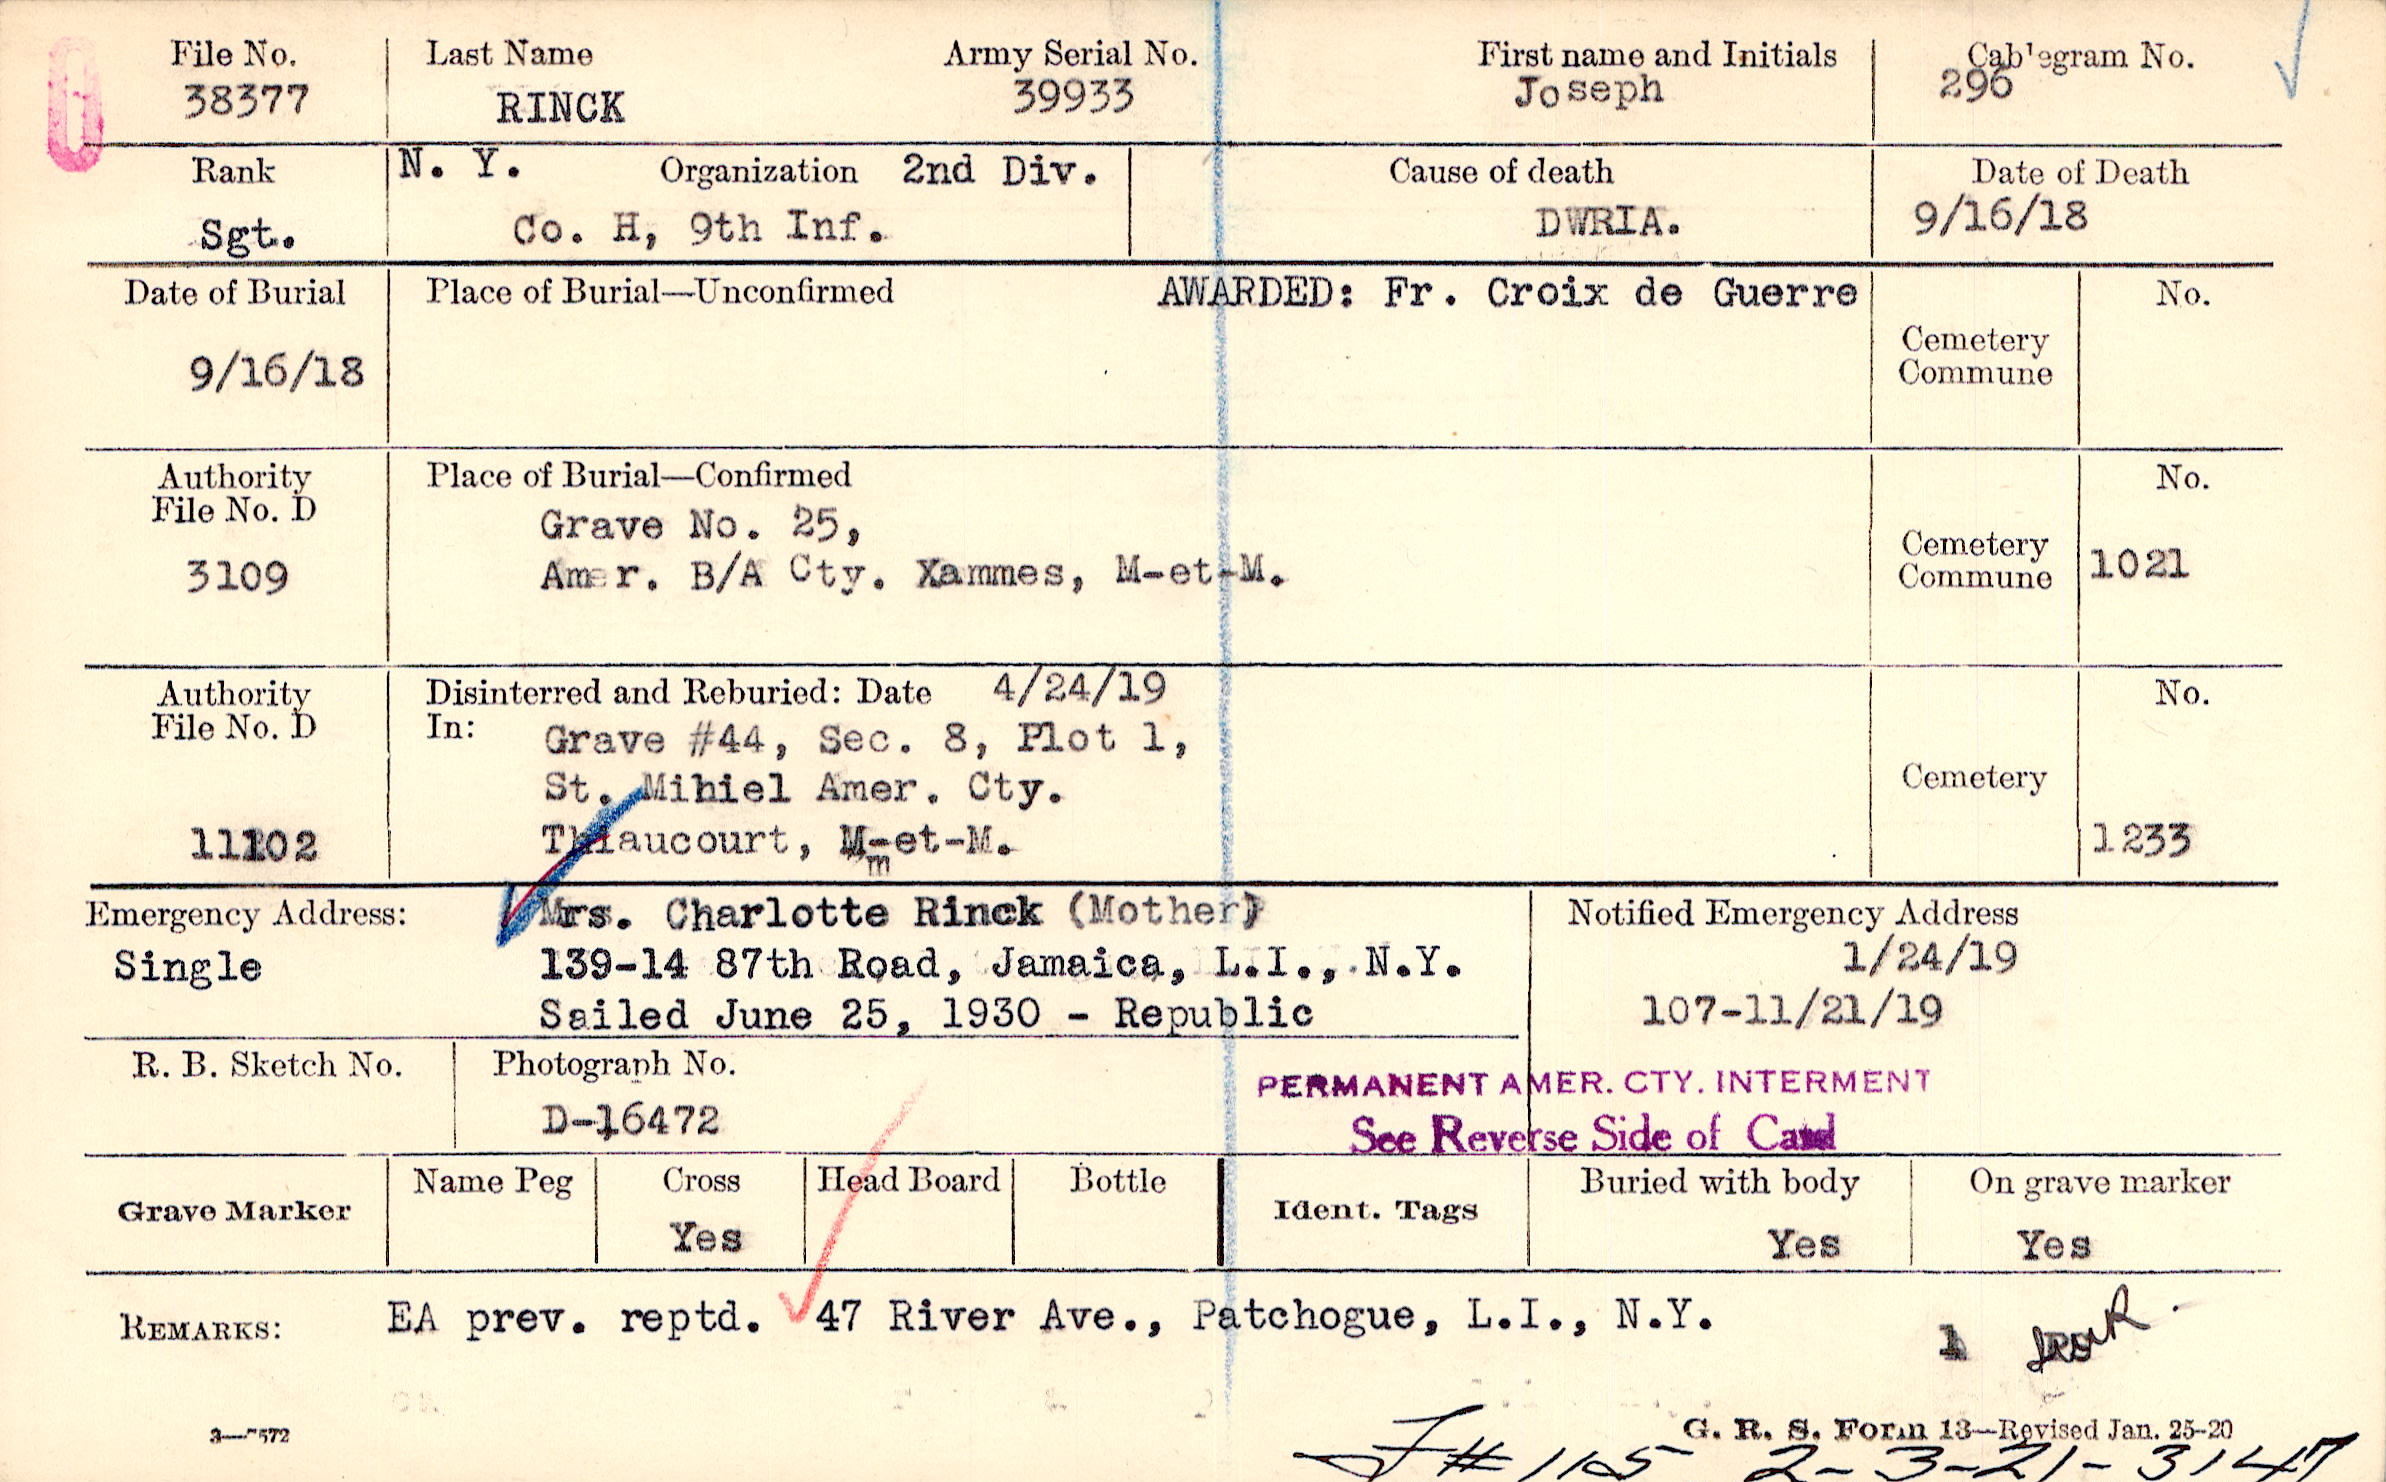 File No. Last Name Army Serial No. First name and Initials Cab'egram No.
38377 RINCK 39933 Joseph 296
Rank N. Y. Organization 2nd Div. Cause of death Date of Death
Sgt. Co. H, 9th Inf. DWRIA. 9/16/18
Date of Burial Place of Burial—Unconfirmed AWARDED: Fr. Croix de Guerre No.
Cemetery
9/16/18 Commune
Authority Place of Burial—Confirmed No.
File No. D
Grave No. 25,
Cemetery
3109 Amer. B/A Cty. Xammes, M-et-M. Commune 1021
Authority Disinterred and Reburied: Date 4/24/19 No.
File No. D In: Grave #44, Sec. 8, Plot 1,
St. Mihiel Amer. Cty. Cemetery
11102 Thiaucourt, M-et-M. 1233
m
Emergency Address: Mrs. Charlotte Rinck (Mother) Notified Emergency Address
Single 139-14 87th Road, Jamaica, L.I., N.Y. 1/24/19
Sailed June 25, 1930 - Republic 107-11/21/19
R. B. Sketch No. Photograph No.
D-16472
PERMANENT AMER. CTY. INTERMENT
See Reverse Side of Card
Grave Marker Name Peg Cross Head Board Bottle Ident. Tags Buried with body On grave marker
Yes Yes Yes
REMARKS: EA prev. reptd. 47 River Ave., Patchogue, L.I., N.Y.
1
3—7572 G. R. S. Form 13—Revised Jan. 25-20
# 1105 2-3-21-3147